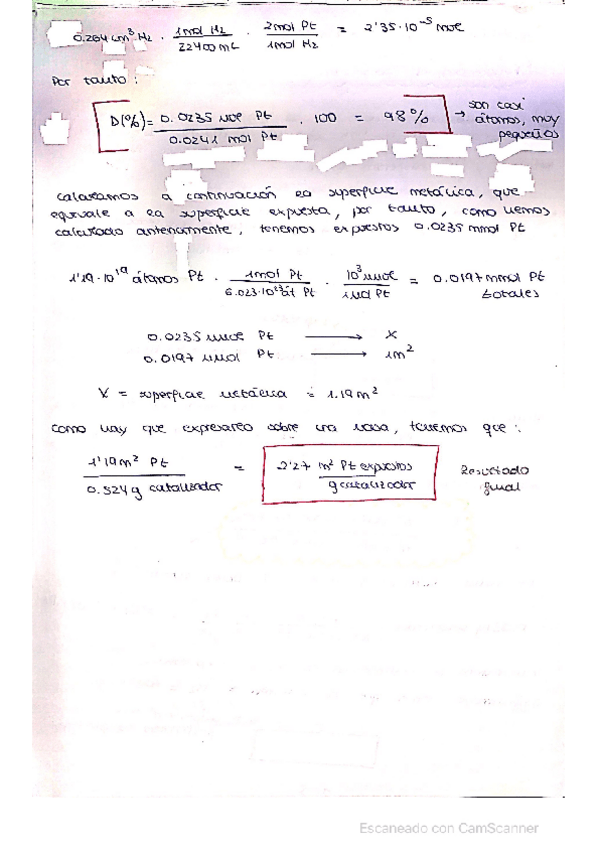 0.264 cm³ H₂ · 1mol H₂ / 22400 mL · 2mol Pt / 1mol H₂ = 2'35·10⁻⁵ mol
Por tanto :
D(%) = 0.0235 mol Pt / 0.0241 mol Pt · 100 = 98% → son casi átomos, muy pequeños
Calculamos a continuación la superficie metálica, que
equivale a la superficie expuesta, por tanto, como hemos
calculado anteriormente, tenemos expuestos 0.0235 mmol Pt
1'19·10¹⁹ átomos Pt · 1mol Pt / 6.023·10²³ át Pt · 10³ mmol / 1mol Pt = 0.0197 mmol Pt totales
0.0235 mmol Pt → X
0.0197 mmol Pt → 1m²
X = superficie metálica = 1.19 m²
como hay que expresarlo sobre una masa, tenemos que :
1'19 m² Pt / 0.524 g catalizador = 2'27 m² Pt expuestos / g catalizador Resultado final
Escaneado con CamScanner